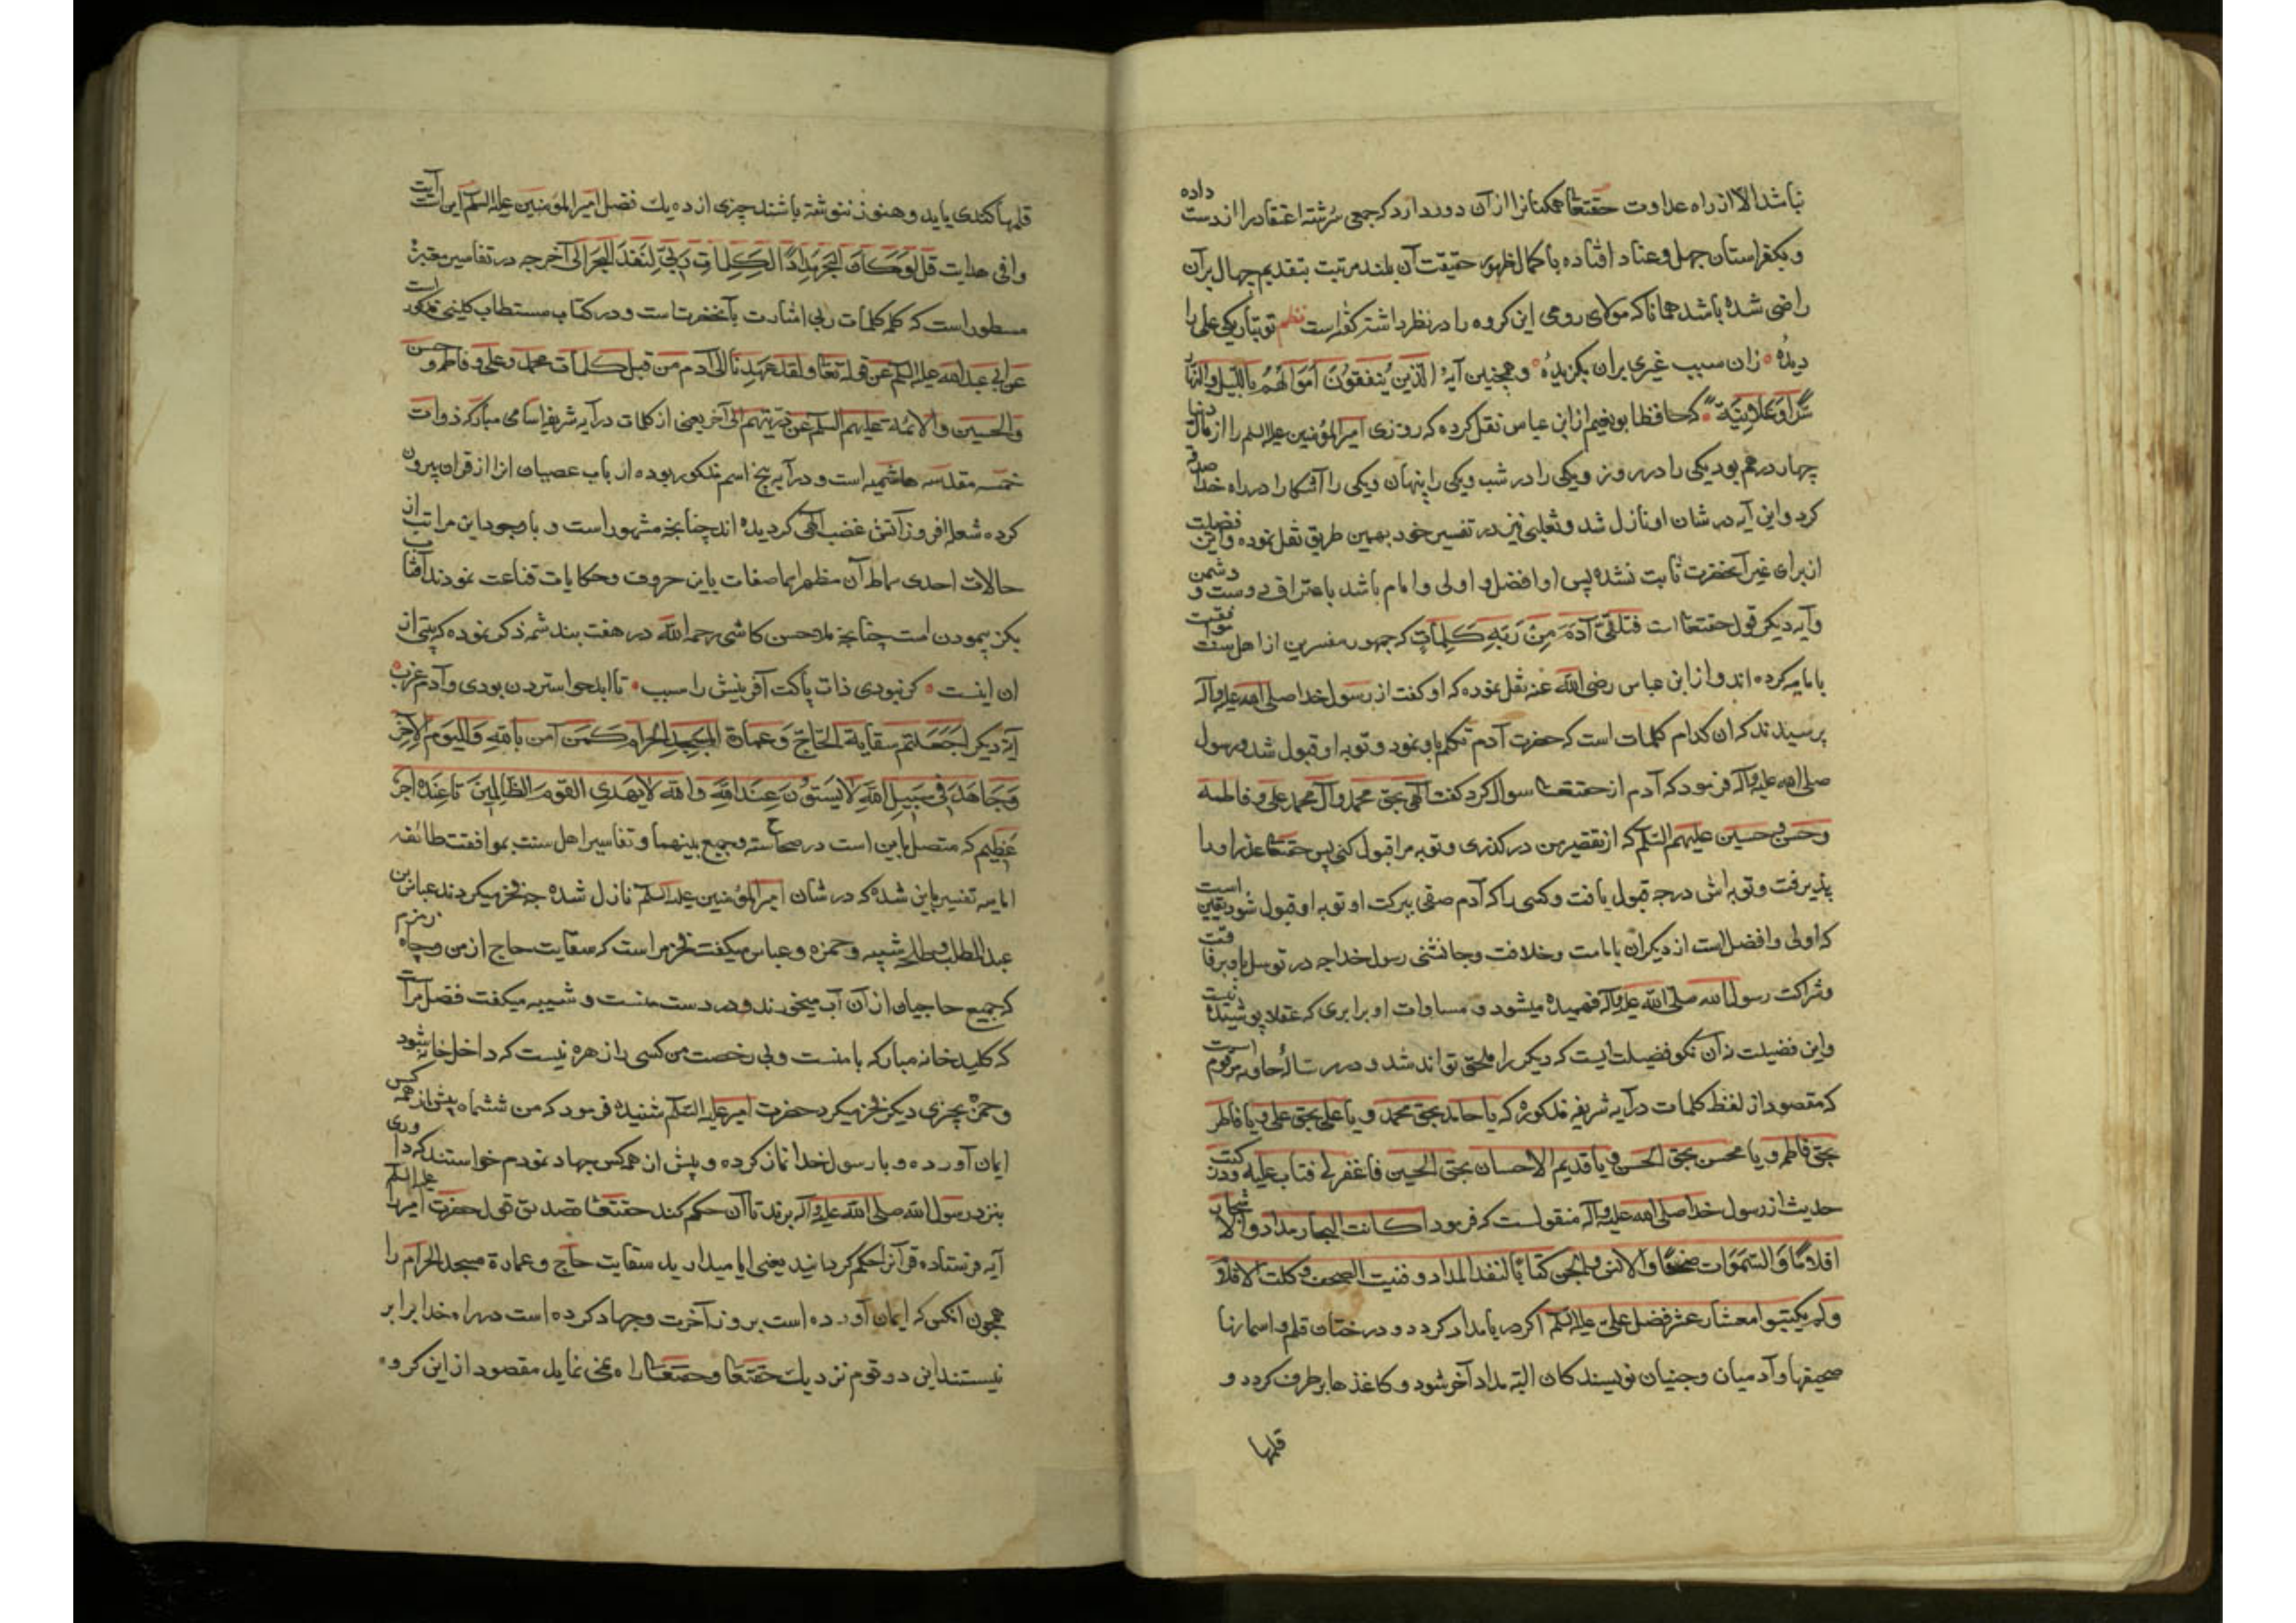 نباشد الا از راه عداوت حقتعالی همکنانرا از آن دور دارد که جمعی سرشته اعتقاد را از دست داده
و بکفرستان جهل و عناد افتاده با کمال ظهور حقیقت آن بلند مرتبت بتقدیم جهال بر آن
راضی شده باشد همانا که مولای رومی این کروه را در نظر داشته کفته است نظم تو بتاریکی علی را
دیدهٔ زان سبب غیری بران بکزیدهٔ و همچنین آیهٔ الَّذین یُنفِقُونَ اَموَالَهُم بِاللَّیلِ وَالنَّهار
سِرّاً وَعَلانِیَة که حافظ ابو نعیم از ابن عباس نقل کرده که روزی امیرالمؤمنین علیه السلم را از مال دنیا
چهار درهم بود یکی را در روز و یکی را در شب و یکی را پنهان و یکی را آشکارا در راه خدا صدقه
کرد و این آیه در شان او نازل شد و ثعلبی نیز در تفسیر خود بهمین طریق نقل نموده و این فضیلت
از برای غیر آنحضرت ثابت نشده پس او افضل و اولی و امام باشد باعتراف دوست و دشمن
و آیه دیکر قول حقتعالی است فَتَلَقّی آدَمَ مِنْ رَبِّهِ کَلِماتٍ که جمهور مفسرین از اهل سنت موافقت
با امامیه کرده اند و از ابن عباس رضی الله عنه نقل نموده که او کفت از رسول خدا صلی الله علیه وآله
پرسیدند که ان کدام کلمات است که حضرت آدم تکلم باو نمود و توبه او قبول شد رسول
صلی الله علیه وآله فرمود که آدم از حقتعالی سوال کرد کفت الهی بحق محمد و آل محمد علی و فاطمه
و حسن و حسین علیهم السلم که از تقصیر من درکذری و توبه مرا قبول کنی پس حقتعالی عذر او را
پذیرفت و توبه اش درجه قبول یافت و کسی را که آدم صفی ببرکت او توبه او قبول شود یقین است
که اولی و افضل است از دیکران بامامت و خلافت و جانشینی رسول خدا چه در توسل باو مرافقت
و شراکت رسول الله صلی الله علیه وآله فهمیده میشود و مساوات او برابری که عقلا پوشیده نیست
و این فضیلت زان نکو فضیلت ایست که دیکری را ملحق تواند شد و در رسالهٔ حاویه مرقوم است
که مقصود از لفظ کلمات در آیه شریفه مذکوره که یا حامد بحق محمد و یا علی بحق علی و یا فاطر
بحق فاطمه و یا محسن بحق الحسن و یا قدیم الاحسان بحق الحسین فاغفرلی فتاب علیه و در کتب
حدیث از رسول خدا صلی الله علیه وآله منقولست که فرمود کانت البحار مداد والاشجار
اقلاماً وَالسَّمَوات صحفا والانس والجن کتاباً لنفد المداد و فنیت الصحف و کلت الاقلام
ولم یکتبوا معشار عشر فضل علیّ علیه السلم اکر دریا مداد کردد و درختان قلم و اسمانها
صحیفها و آدمیان و جنیان نویسندکان البته مداد آخر شود و کاغذها برطرف کردد و
قلمها
قلمها کندی یابد و هنوز ننوشته باشند چیزی از ده یک فضل امیرالمؤمنین علیه السلم این است آیت
وافی هدایت قُل لَوْ کَانَ البَحْرُ مِدَاداً لِکَلِمَاتِ رَبِّی لَنَفِدَ البَحْرُ الی آخر چه در تفاسیر معتبره
مسطور است که کلمه کلمات ربی اشارت بآنحضرتست و در کتاب مستطاب کلینی مذکور است
عن ابی عبدالله علیه السلم عن قوله تعالی ولقد عهدنا الی آدم من قبل کلمات محمد وعلی و فاطمه و حسن
والحسین والائمة علیهم السلم عن ذریتهم الی آخر یعنی از کلمات در آیه شریفه اسامی مبارکه ذوات
خمسه مقدسه هاشمیه است و در آیه پنج اسم مذکور بوده از باب عصیان انرا از قران بیرون
کرده شعله افروز آتش غضب الهی کردیده اند چنانچه مشهور است و با وجود این مراتب از
حالات احدی آن مظهر صفات باین حروف و حکایات قناعت نمودند آفتاب
بکز پیمودن است چنانچه ملا حسن کاشی رحمه الله در هفت بند شمه ذکر نموده که بیتی از
ان اینست کر نبودی ذات پاکت آفرینش را سبب تا ابد حوا سترون بودی و آدم عزب
آیهٔ دیکر اَجَعَلتُم سِقَایَةَ الحَاجِّ وَعِمَارَة المَسجِدِ الحَرام کَمَنْ آمَنَ بِاللهِ وَالیَومِ الآخِرِ
وَجَاهَدَ فی سَبِیلِ اللهِ لا یَستَوُنَ عِندَ اللهِ وَاللهُ لا یَهدِی القَومَ الظالِمینَ تا عِندَه اَجرٌ
عَظِیم که متصل باین است در صحاح سته و جمع بینهما و تفاسیر اهل سنت بموافقت طائفه
امامیه تفسیر باین شده که در شان امیرالمؤمنین علیه السلم نازل شده چه فخر میکردند عباس بن
عبدالمطلب و طلحه شیبه و حمزه و عباس میکفت فخر مراست که سقایت حاج از من و چاه زمزم
که جمیع حاجیان از آن آب میخورند در دست منست و شیبه میکفت فضل مراست
که کلید خانه مبارکه با منست و بی رخصت من کسی را زهره نیست که داخل خانه شود
و حمزه بچیزی دیکر فخر میکرد حضرت امیر علیه السلم شنیده فرمود که من ششماه پیش از همه کس
ایمان آورده و با رسول خدا نماز کرده و پیش از همه کس جهاد نمودم خواستند که داوری
بنزد رسول الله صلی الله علیه وآله برند تا آن حکم کند حقتعالی تصدیق قول حضرت امیر را علیه السلم
آیه فرستاده قرآنرا حکم کردانید یعنی ایا میدارید سقایت حاج و عمارة مسجد الحرام را
همچون انکس که ایمان آورده است بروز آخرت و جهاد کرده است در راه خدا برابر
نیستند این دو قوم نزدیک حقتعالی و حقتعالی راه نمی نماید مقصود از این کروه